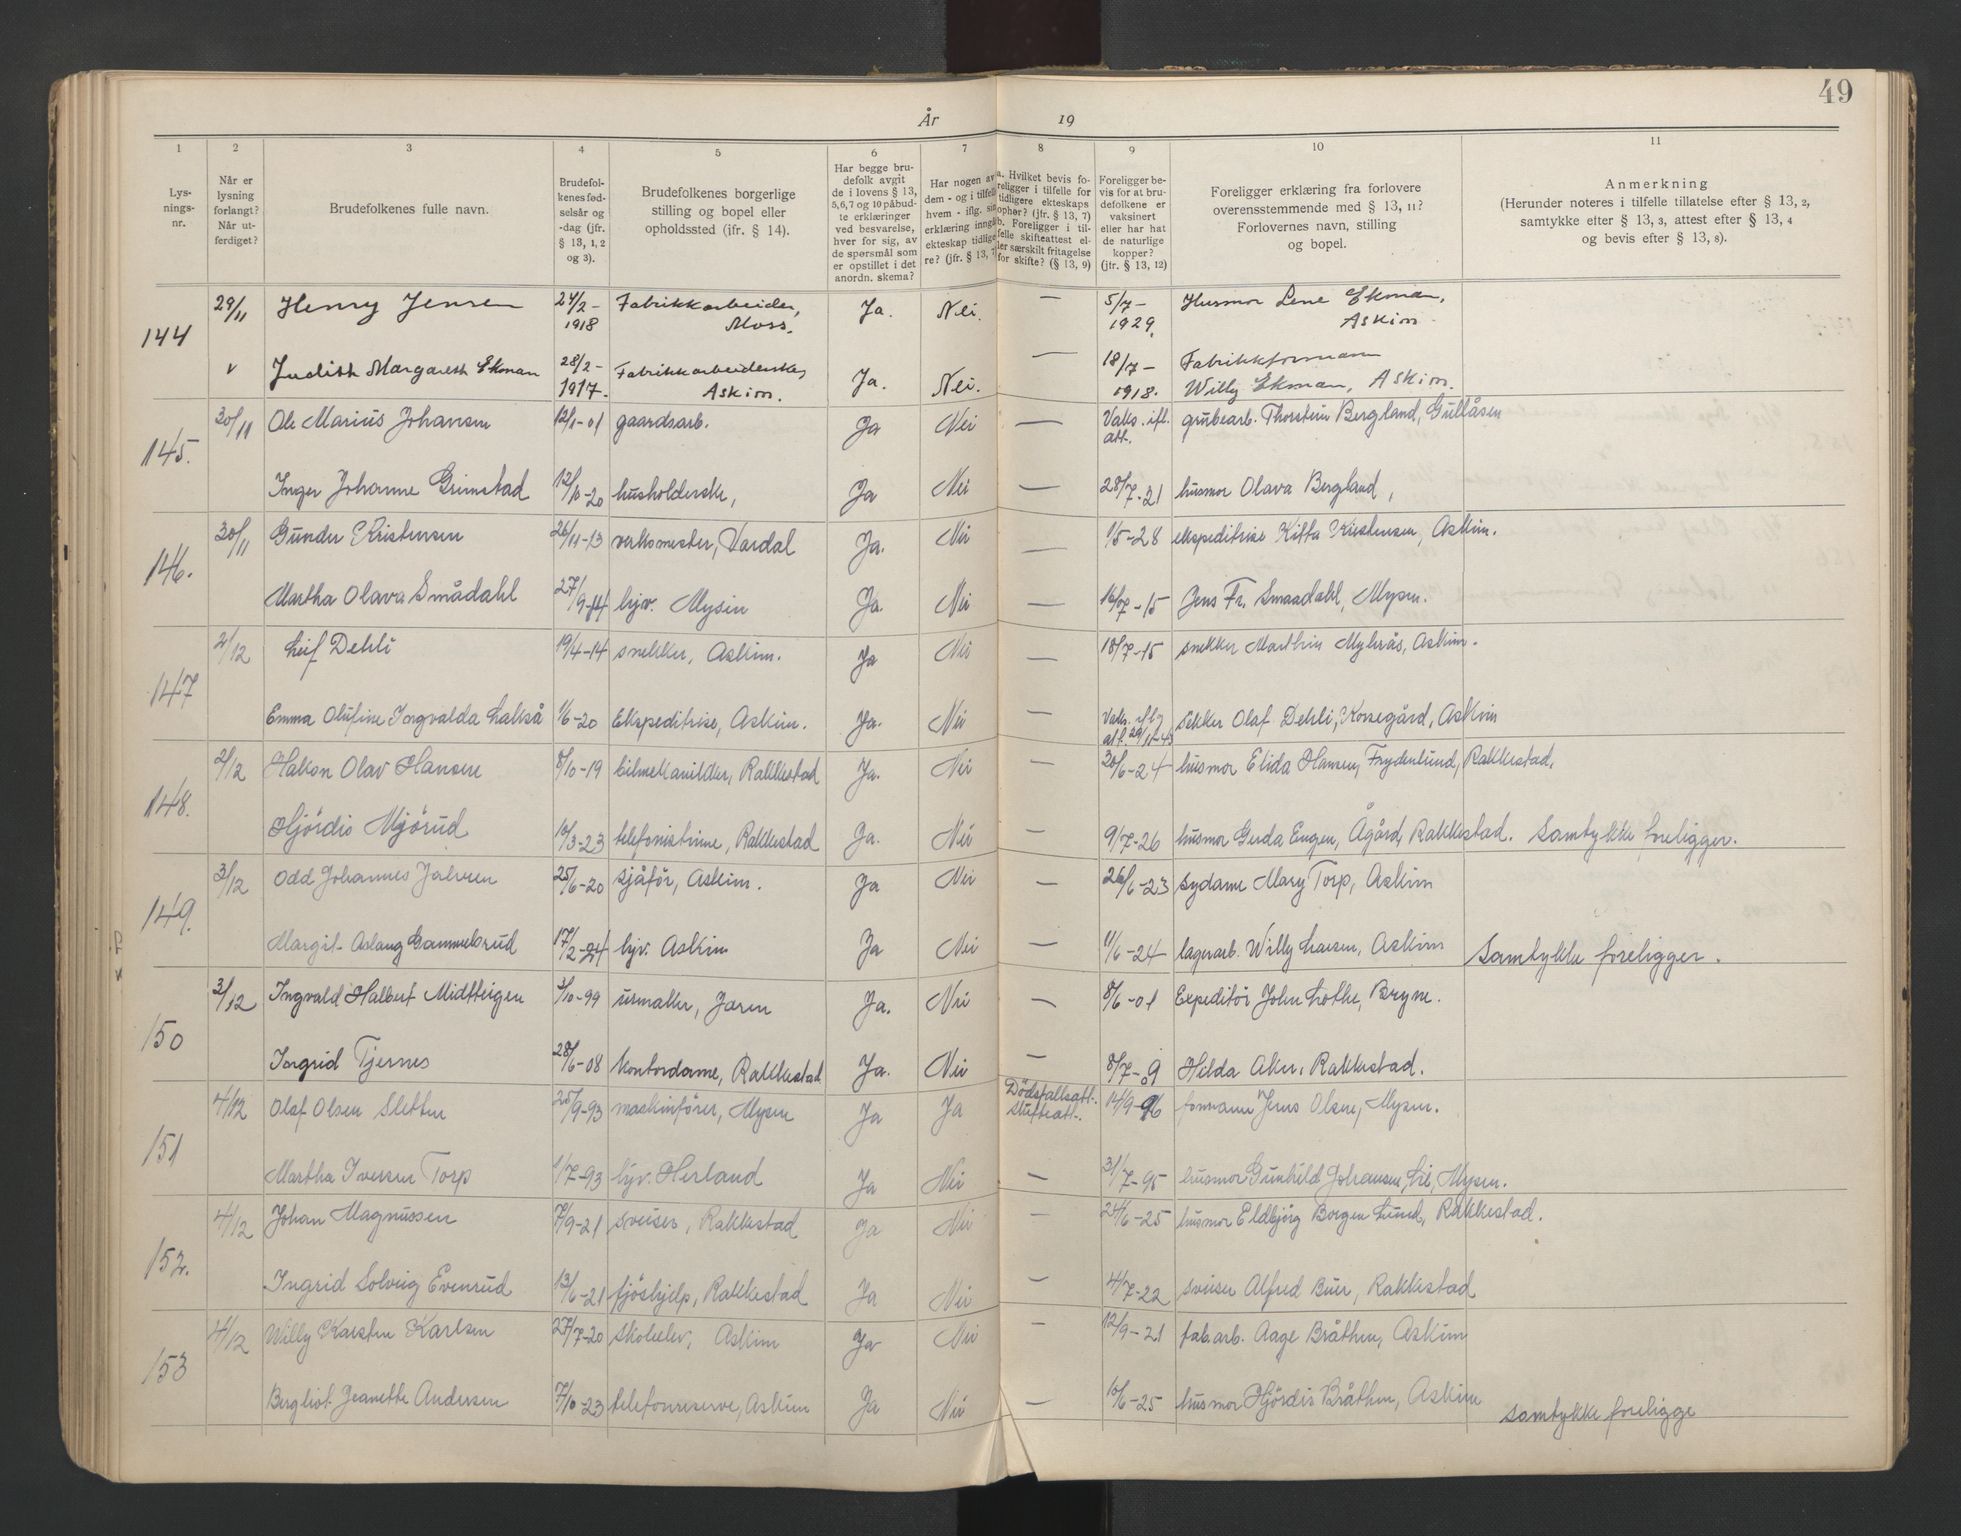 49
År 19
1 2 3 4 5 6 7 8 9 10 11
Lys-
nings-
nr.
Når er
lysning
forlangt?
Når ut-
ferdiget?
Brudefolkenes fulle navn.
Brudefol-
kenes fød-
selsår og
-dag (jfr.
§ 13, 1, 2
og 3).
Brudefolkenes borgerlige
stilling og bopel eller
opholdssted (ifr. § 14).
Har begge bru-
defolk avgit
de i lovens § 13,
5,6,7 og 10 påbud-
te erklæringer
ved besvarelse,
hver for sig, av
de spørsmål som
er opstillet i det
anordn. skema?
Har nogen av
dem - og i tilfelle
hvem - iflg. sin
erklæring inngå
ekteskap tidlige
re? (jfr. § 13, 7
a. Hvilket bevis fo-
religger i tilfelle for
tidligere ekteskaps
ophør? (jfr. § 13, 7)
b. Foreligger i til-
felle skifteattest el-
ler særskilt fritagelse
for skifte? (§ 13, 9)
Foreligger be-
vis for at bru-
defolkene er
vaksinert
eller har hat
de naturlige
kopper?
(jfr. § 13, 12)
Foreligger erklæring fra forlovere
overensstemmende med § 13, 11?
Forlovernes navn, stilling
og bopel.
Anmerkning
(Herunder noteres i tilfelle tillatelse efter § 13, 2,
samtykke efter § 13, 3, attest efter § 13, 4
og bevis efter § 13, 8).
144 29/11 Henry Jensen 24/2-1918 Fabrikkarbeider, Moss. Ja. Nei. — 5/7-1929. Husmor Lene Ekman, Askim.
Judith Margareth Ekman 28/2-1917. Fabrikkarbeiderske, Askim. Ja. Nei. — 18/7-1918. Fabrikkformann Willy Ekman, Askim.
145. 30/11 Ole Marius Johansen 12/1-01 gaardsarb. Ja Nei — Vaks. ifl. att. grubearb. Thorstein Bergland, Gullåsen
Inger Johanne Grimstad 12/10-20 husholderske, Ja Nei — 28/7-21 husmor Olava Bergland,
146. 30/11 Gunder Kristensen 26/11-13 verksmester, Vardal Ja. Nei — 1/5-28 ekspeditrise Kitta Kristensen, Askim.
Martha Olava Smådahl 27/9-14 hjv. Mysen Ja. Nei — 16/7-15 Jens Fr. Smaadahl, Mysen.
147 2/12 Leif Dehli 19/4-14 snekker, Askim. Ja Nei — 18/7-15 snekker Marthin Askim.
Emma Olufine Ingvalda 1/6-20 Ekspeditrise, Askim. Ja. Nei — Vaks. iflg att. 29/11-43 Olaf Dehli, Korsegård, Askim
148. 2/12 Håkon Olav Hansen 8/10-19 bilmekaniker, Rakkestad Ja. Nei — 30/6-24 husmor Elida Hansen, Frydenlund, Rakkestad.
Hjördis Mjörud 10/3-23 telefonistinne, Rakkestad Ja. Nei — 9/7-26 husmor Gerda Engen, Ågård, Rakkestad. Samtykke foreligger.
149. 3/12 Odd Johannes 25/6-20 sjåför, Askim. Ja Nei — 26/6-23 sydame Mary Torp, Askim
Margit Aslaug Gammelsrud 17/2-24 hjv. Askim Ja Nei — 11/6-24 lagerarb. Willy Larsen, Askim Samtykke foreligger.
150 3/12 Ingvald Halbert Midtteigen 3/10-99 urmaker, Jaren Ja. Nei — 8/6-01 Expeditör John Lothe, Bryne.
Ingrid Tjernes 28/6-08 kontordame, Rakkestad Ja. Nei — 8/7-09 Hilda Aker, Rakkestad.
151 4/12 Olaf Olsen Sletten 25/9-93 maskinfører, Mysen Ja Ja Dödsfallsatt. skifteatt. 14/9-96 formann Jens Olsen, Mysen.
Martha Iversen Torp 1/7-93 hjv. Herland Ja Nei — 31/7-95 husmor Gunhild Johansen, Li, Mysen.
152. 4/12 Johan Magnussen 7/9-21 sveiser, Rakkestad Ja Nei 24/6-25 husmor Eldbjörg Borgen Lund, Rakkestad.
Ingrid Solveig Evenrud 13/6-21 fjöshjelp, Rakkestad Ja Nei — 4/7-22 sveiser Alfred Buer, Rakkestad
153 4/12 Willy Karsten Karlsen 27/7-20 skoleelev, Askim Ja Nei — 12/9-21 fab.arb. Aage Bråthen, Askim
Bergliot Jeanette Andersen 7/10-23 telefonreserve, Askim Ja Nei — 10/6-25 husmor Hjördis Bråthen, Askim samtykke foreligge